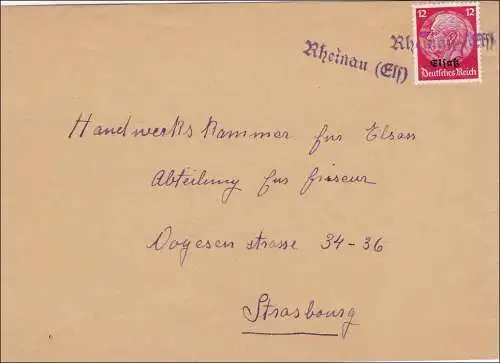 12 12
Rheinau (Els)
Rheinau (Els)
Elsaß
Deutsches Reich
Handwerkskammer fur Elsas
Abteilung fur friseur
Vogesen strasse 34-36
Strasbourg